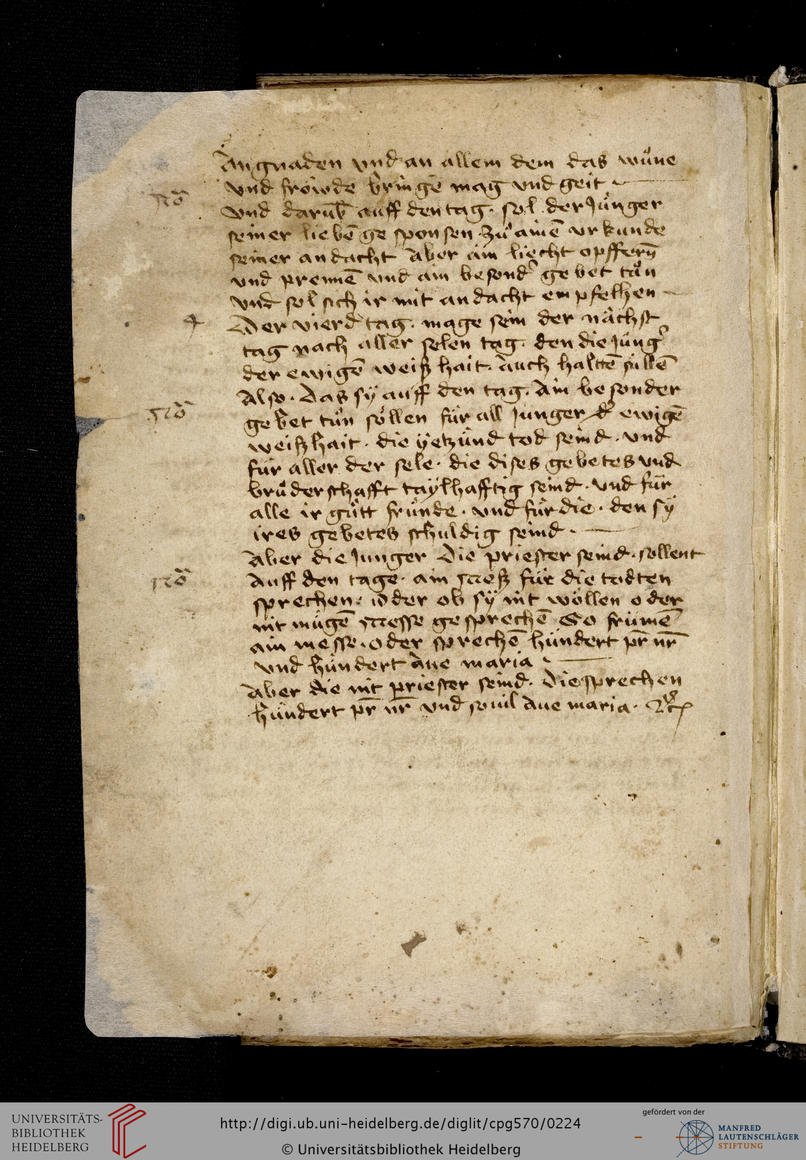 An gnaden vnd an allem dem das wúne
vnd fröwde bringe mag vnd geit
Nō
vnd darūb auff den tag. sol der Junger
seiner liebē gesponsen. zů ainē vrkunde
seiner andacht Aber ain liecht opffern̄
vnd prennē vnd ain besond' gebet tůn
vnd sol sich ir mit andacht enpfelhen
4
Der vierd tag. mage sein der nächst
tag nach aller selen tag. den die Jung'
der ewigē weiſzhait. Auch haltē süllē
Also. Das sÿ auff den tag. Ain besonder
Nō
gebet tůn söllen für all Junger d' ewigē
weiſzhait. die ÿetzund tod seind. vnd
für aller der sele. die dises gebetes vnd
brůderschafft taÿlhafftig seind. vnd für
alle ir gůtt fründe. vnd für die. den sÿ
ires gebetes schuldig seind.
Aber die Junger Die priester seind. sollent
Nō
Auff den tage. ain meſz für die todten
sprechen. oder ob sÿ nit wöllen oder
nit mügē messe gesprechē So frümē
ain messe. oder sprechē hundert pr̄ nr̄
vnd hundert Aue maria
Aber die nit priester seind. Die sprechen
hundert pr̄ nr̄ vnd souil Aue maria.
UNIVERSITÄTS-
BIBLIOTHEK
HEIDELBERG
http://digi.ub.uni-heidelberg.de/diglit/cpg570/0224
© Universitätsbibliothek Heidelberg
gefördert von der
MANFRED
LAUTENSCHLÄGER
STIFTUNG